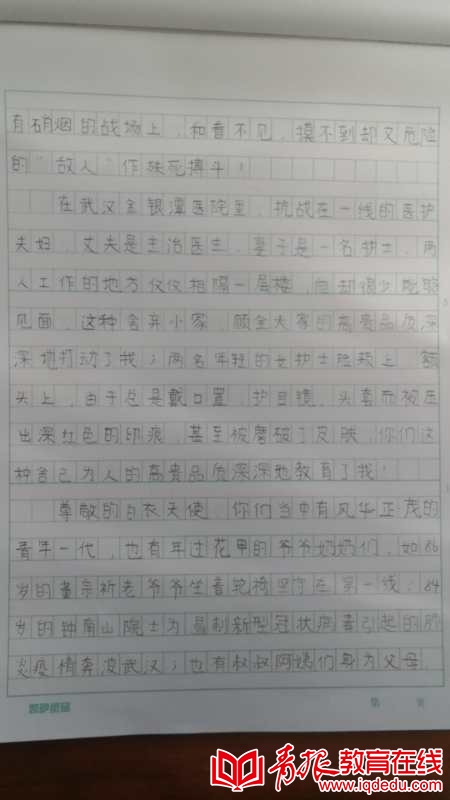 有硝烟的战场上，和看不见，摸不到却又危险
的“敌人”作殊死搏斗！
在武汉金银潭医院里，抗战在一线的医护
夫妇，丈夫是主治医生，妻子是一名护士，两
人工作的地方仅仅相隔一层楼，但却很少能够
见面，这种舍弃小家，顾全大家的高贵品质深
深地打动了我；两名年轻的女护士脸颊上，额
头上，由于总是戴口罩，护目镜，头套而被压
出深红色的印痕，甚至被磨破了皮肤，你们这
种舍己为人的高贵品质深深地教育了我！
尊敬的白衣天使，你们当中有风华正茂的
青年一代，也有年过花甲的爷爷奶奶们，如86
岁的董宗祈老爷爷坐着轮椅坚守在第一线；84
岁的钟南山院士为遏制新型冠状病毒引起的肺
炎疫情奔波武汉；也有叔叔阿姨们身为父母，
第 页
青报教育在线
www.iqdedu.com